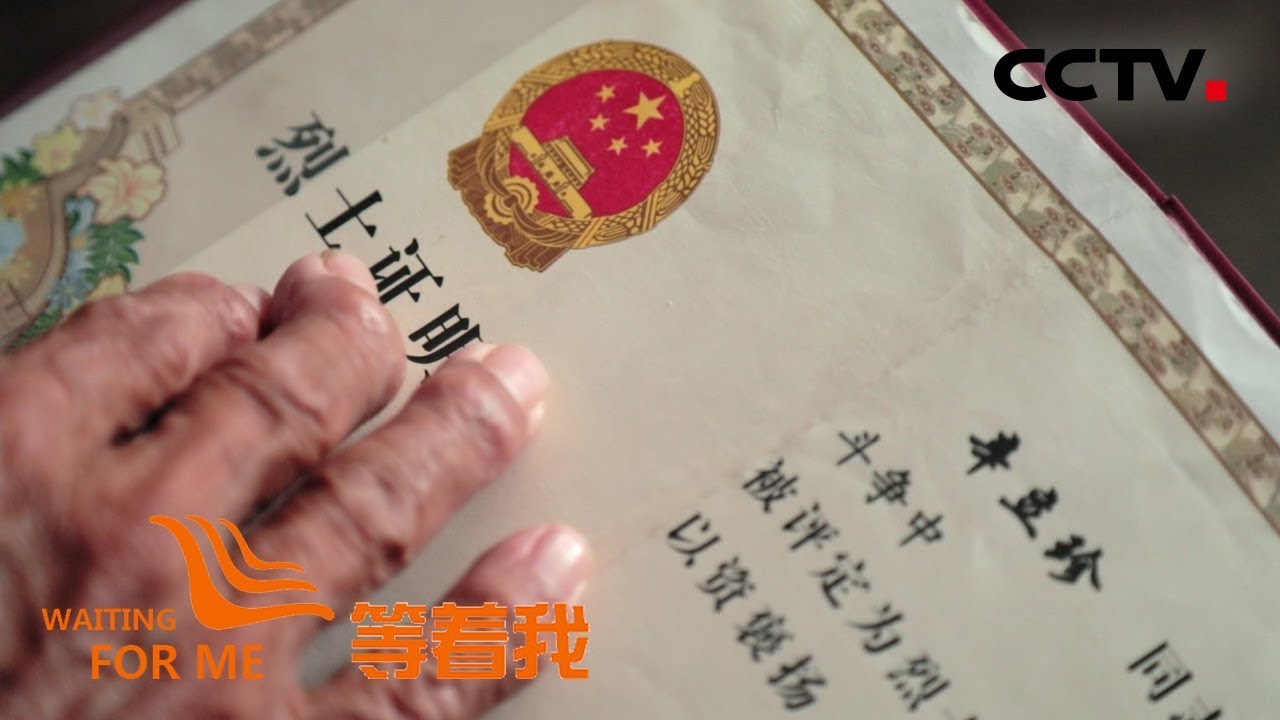 CCTV
烈士证明
斗争中
被评定为烈
以资褒扬
同
WAITING
FOR ME
等着我